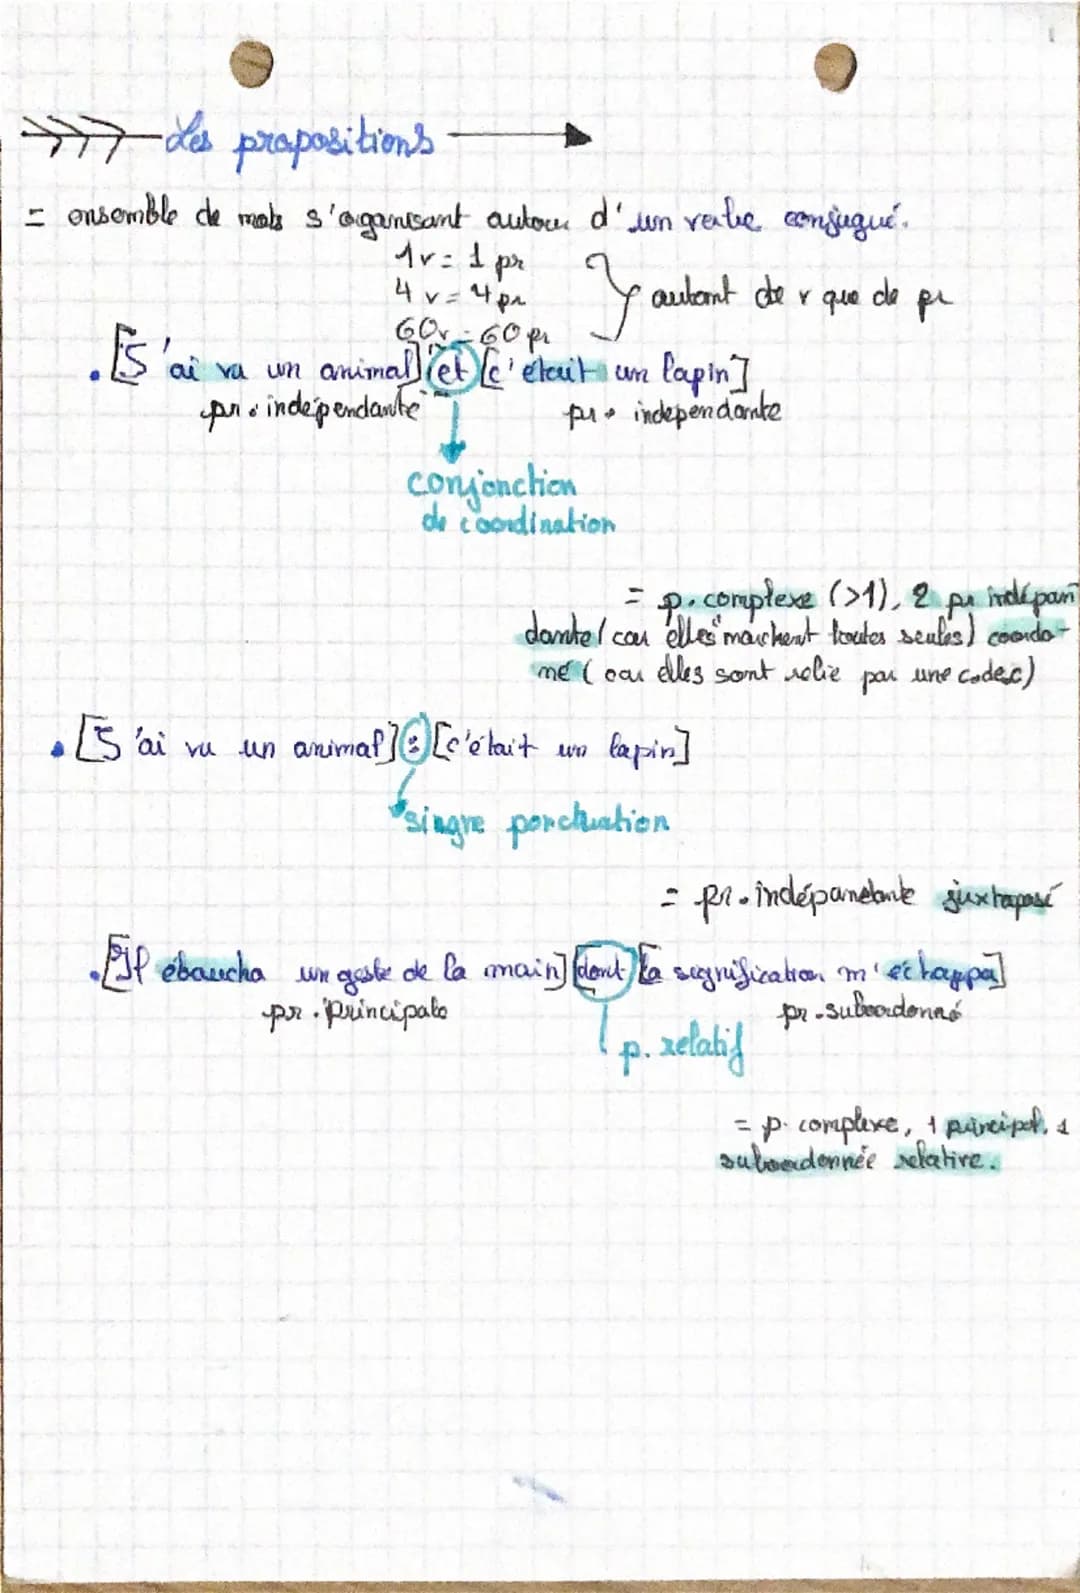 Les propositions
= ensemble de mots s'organisant autour d'un verbe conjugué.
1v = 1 pr
4 v = 4 pr
60v = 60 pr
autant de v que de pr
. [J'ai vu un animal] et [c'était un lapin]
pr. indépendante pr. independante
conjonction
de coordination
= p. complexe (>1), 2 pr indépan
dante (car elles "marchent toutes seules) coordo-
né (car elles sont relie par une codec)
. [J'ai vu un animal] : [c'était un lapin]
singne ponctuation
= pr. indépandante juxtaposé
. [Il ébaucha un geste de la main] [dont la signification m'échappa]
pr. principale pr. subordonné
p. relatif
= p. complexe, 1 principal, 1
subordonnée relative.